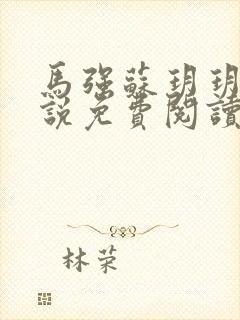 馬强蘇玥玥
說免費閱讀
林荣